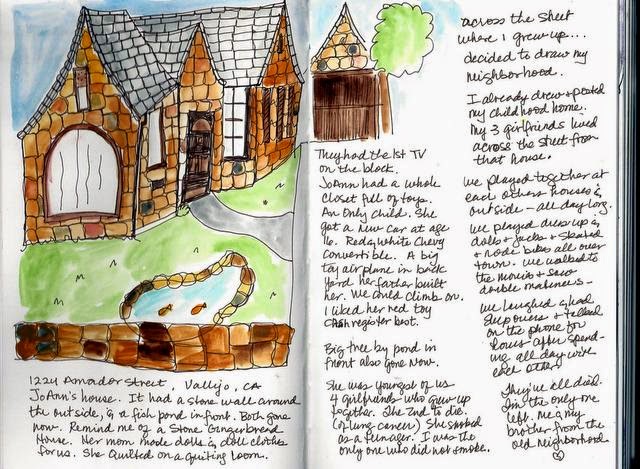 1224 Amador Street, Vallejo, CA
JoAnn's house. It had a stone wall around
the outside, & a fish pond in front. Both gone
now. Remind me of a Stone Gingerbread
House. Her mom made dolls & doll clothes
for us. She Quilted on a quilting loom.
They had the 1st TV
on the block.
JoAnn had a whole
closet full of toys.
An Only Child. She
got a new car at age
16. Red & white Chevy
Convertible. A big
toy airplane in back
yard her father built
her. We could climb on.
I liked her red toy
cash register best.
Big tree by pond in
front also gone now.
She was youngest of us
4 girlfriends who grew up
together. She 2nd to die.
(of lung cancer) She smoked
as a teenager. I was the
only one who did not smoke.
across the street
where I grew up...
decided to draw my
neighborhood.
I already drew & posted
my childhood home.
My 3 girlfriends lived
across the street from
that house.
We played together at
each others houses &
outside – all day long.
We played dress up &
dolls & jacks & skated
& rode bikes all over
town. We walked to
the movies & saw
double matinees –
We laughed & had
sleepovers & talked
on the phone for
hours after spend-
ing all day with
each other.
They've all died.
I'm the only one
left. Me & my
brother from the
old neighborhood